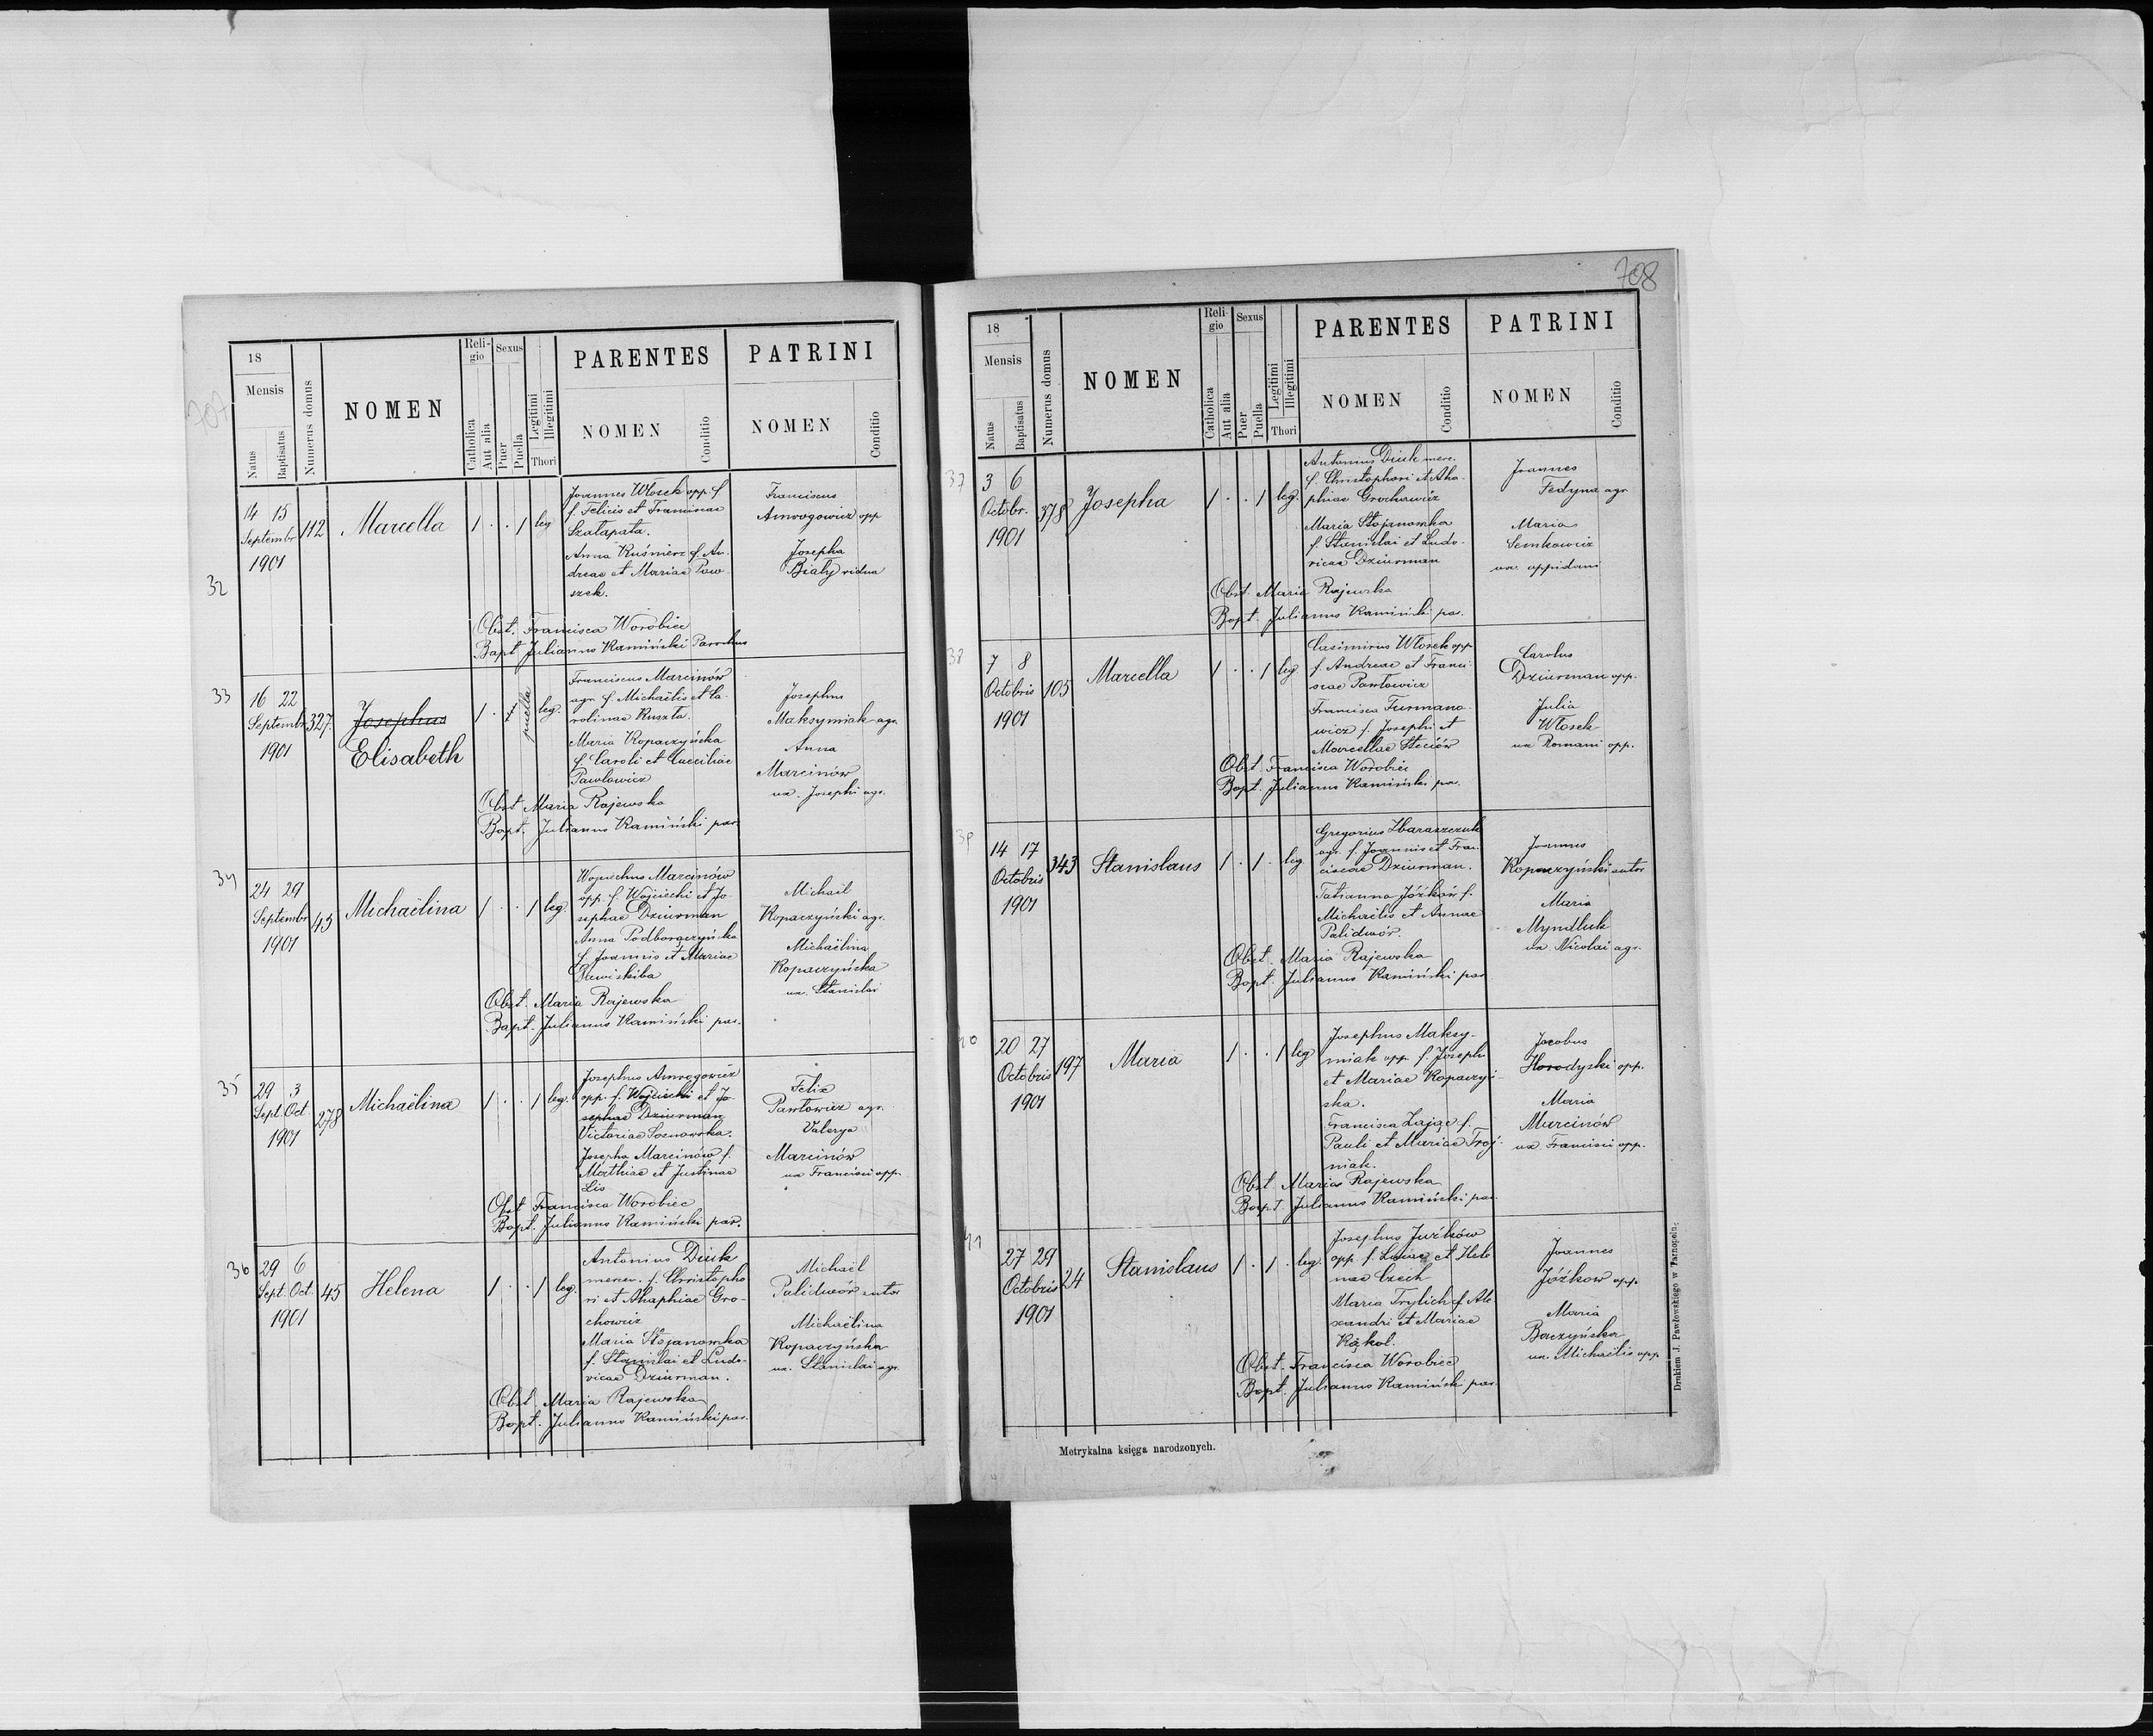 707
18
Mensis
Natus
Baptisatus
Numerus domus
NOMEN
Reli-
gio
Catholica
Aut alia
Sexus
Puer
Puella
Legitimi
Illegitimi
Thori
PARENTES
NOMEN
Conditio
PATRINI
NOMEN
Conditio
32
14 15
Septembr
1901
112
Marcella
1 . . 1 leg
Joannes Włosek opp. f
f. Felicis et Franciscae
Szałapata.
Anna Kuśnierz f. An-
dreae et Mariae Paw-
szek.
Franciscus
Amrogowicz opp
Josepha
Biały vidua
Obst. Francisca Worobiec
Bapt Julianus Kamiński Parochus
33
16 22
Septembr
1901
327.
Josephus
Elisabeth
1 . 1 puella leg.
Franciscus Marcinów
agr. f. Michaëlis et Ca-
rolinae Ruszta.
Maria Kopaczyńska
f. Caroli et Caeciliae
Pawłowicz
Josephus
Maksymiak agr.
Anna
Marcinów
ux. Josephi agr.
Obst Maria Rajewska
Bapt. Julianus Kamiński par.
34
24 29
Septembr
1901
45
Michaëlina
1 . . 1 leg.
Wojciechus Marcinów
opp. f. Wojciechi et Jo-
sephae Dziurman
Anna Podboraczyńska
f. Joannis et Mariae
Michaël
Kopaczyński agr.
Michaëlina
Kopaczyńska
ux. Stanislai
Obst. Maria Rajewska
Bapt. Julianus Kamiński par.
35
29 3
Sept. Oct
1901
278
Michaëlina
1 . . 1 leg.
Josephus Amrogowicz
opp. f. Wojciechi et Jo-
sephae Dziurman
Victoriae Sosnowska.
Josepha Marcinów f.
Mathiae et Justinae
Lis
Felix
Pawłowicz agr.
Valerya
Marcinów
ux Francisci opp.
Obst Francisca Worobiec
Bapt. Julianus Kamiński par.
36
29 6
Sept. Oct.
1901
45
Helena
1 . . 1 leg.
Antonius Diuk
mercn. f. Christopho
ri et Ahaphiae Gro-
chowicz
Maria Stojanowska
f. Stanislai et Ludo-
vicae Dziurman.
Michaël
Palidwór sutor
Michaëlina
Kopaczyńska
ux. Stanislai agr.
Obst. Maria Rajewska
Bapt. Julianus Kamiński par.
708
18
Mensis
Natus
Baptisatus
Numerus domus
NOMEN
Reli-
gio
Catholica
Aut alia
Sexus
Puer
Puella
Legitimi
Illegitimi
Thori
PARENTES
NOMEN
Conditio
PATRINI
NOMEN
Conditio
37
3 6
Octobr.
1901
378
Josepha
1 . . 1 leg.
Antonius Diuk merc.
f. Christophori et Aha-
phiae Grochowicz
Maria Stojanowska
f. Stanislai et Ludo-
vicae Dziurman
Joannes
Fedyna agr
Maria
Semkowicz
ux. oppidani
Obst. Maria Rajewska
Bapt. Julianus Kamiński par.
38
7 8
Octobris
1901
105
Marcella
1 . . 1 leg.
Casimirus Włosek opp
f. Andreae et Franci-
scae Pawłowicz
Francisca Furmano-
wicz f. Josephi et
Marcellae Steciów
Carolus
Dziurman opp.
Julia
Włosek
ux Romani opp.
Obst. Francisca Worobiec
Bapt. Julianus Kamiński par.
39
14 17
Octobris
1901
343
Stanislaus
1 . 1 . leg.
Gregorius Zbaraszczuk
agr. f. Joannis et Fran-
ciscae Dziurman.
Tatianna Jóżków f.
Michaëlis et Annae
Palidwór.
Joannes
Kopaczyński sutor
Maria
Myndluk
ux. Nicolai agr.
Obst. Maria Rajewska
Bapt. Julianus Kamiński par
40
20 27
Octobris
1901
197
Maria
1 . . 1 leg
Josephus Maksy-
miak opp. f. Josephi
et Mariae Kopaczyń-
ska.
Francisca Zając f.
Pauli et Mariae Troj-
niak.
Jacobus
Horodyski opp.
Maria
Marcinów
ux. Francisci opp.
Obst Maria Rajewska
Bapt. Julianus Kamiński par.
41
27 29
Octobris
1901
24
Stanislaus
1 . 1 . leg.
Josephus Jużków
opp. f. Lucae et Hele
nae Czech
Maria Trylich f. Ale-
xandri et Mariae
Kąkol.
Joannes
Jóżkow opp.
Maria
Baczyńska
ux. Michaëlis opp.
Obst. Francisca Worobiec
Bapt. Julianus Kamiński par.
Metrykalna księga narodzonych.
Drukiem J. Pawłowskiego w Tarnopolu.